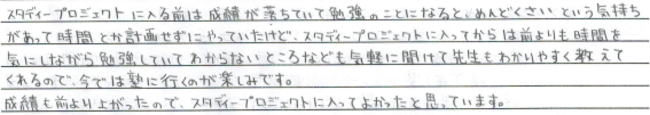 スタディープロジェクトに入る前は成績が落ちていて勉強のことになると、めんどくさいという気持ち
があって時間とか計画せずにやっていたけど、スタディープロジェクトに入ってからは前よりも時間を
気にしながら勉強していてわからないところなども気軽に聞けて先生もわかりやすく教えて
くれるので、今では塾に行くのが楽しみです。
成績も前より上がったので、スタディープロジェクトに入ってよかったと思っています。